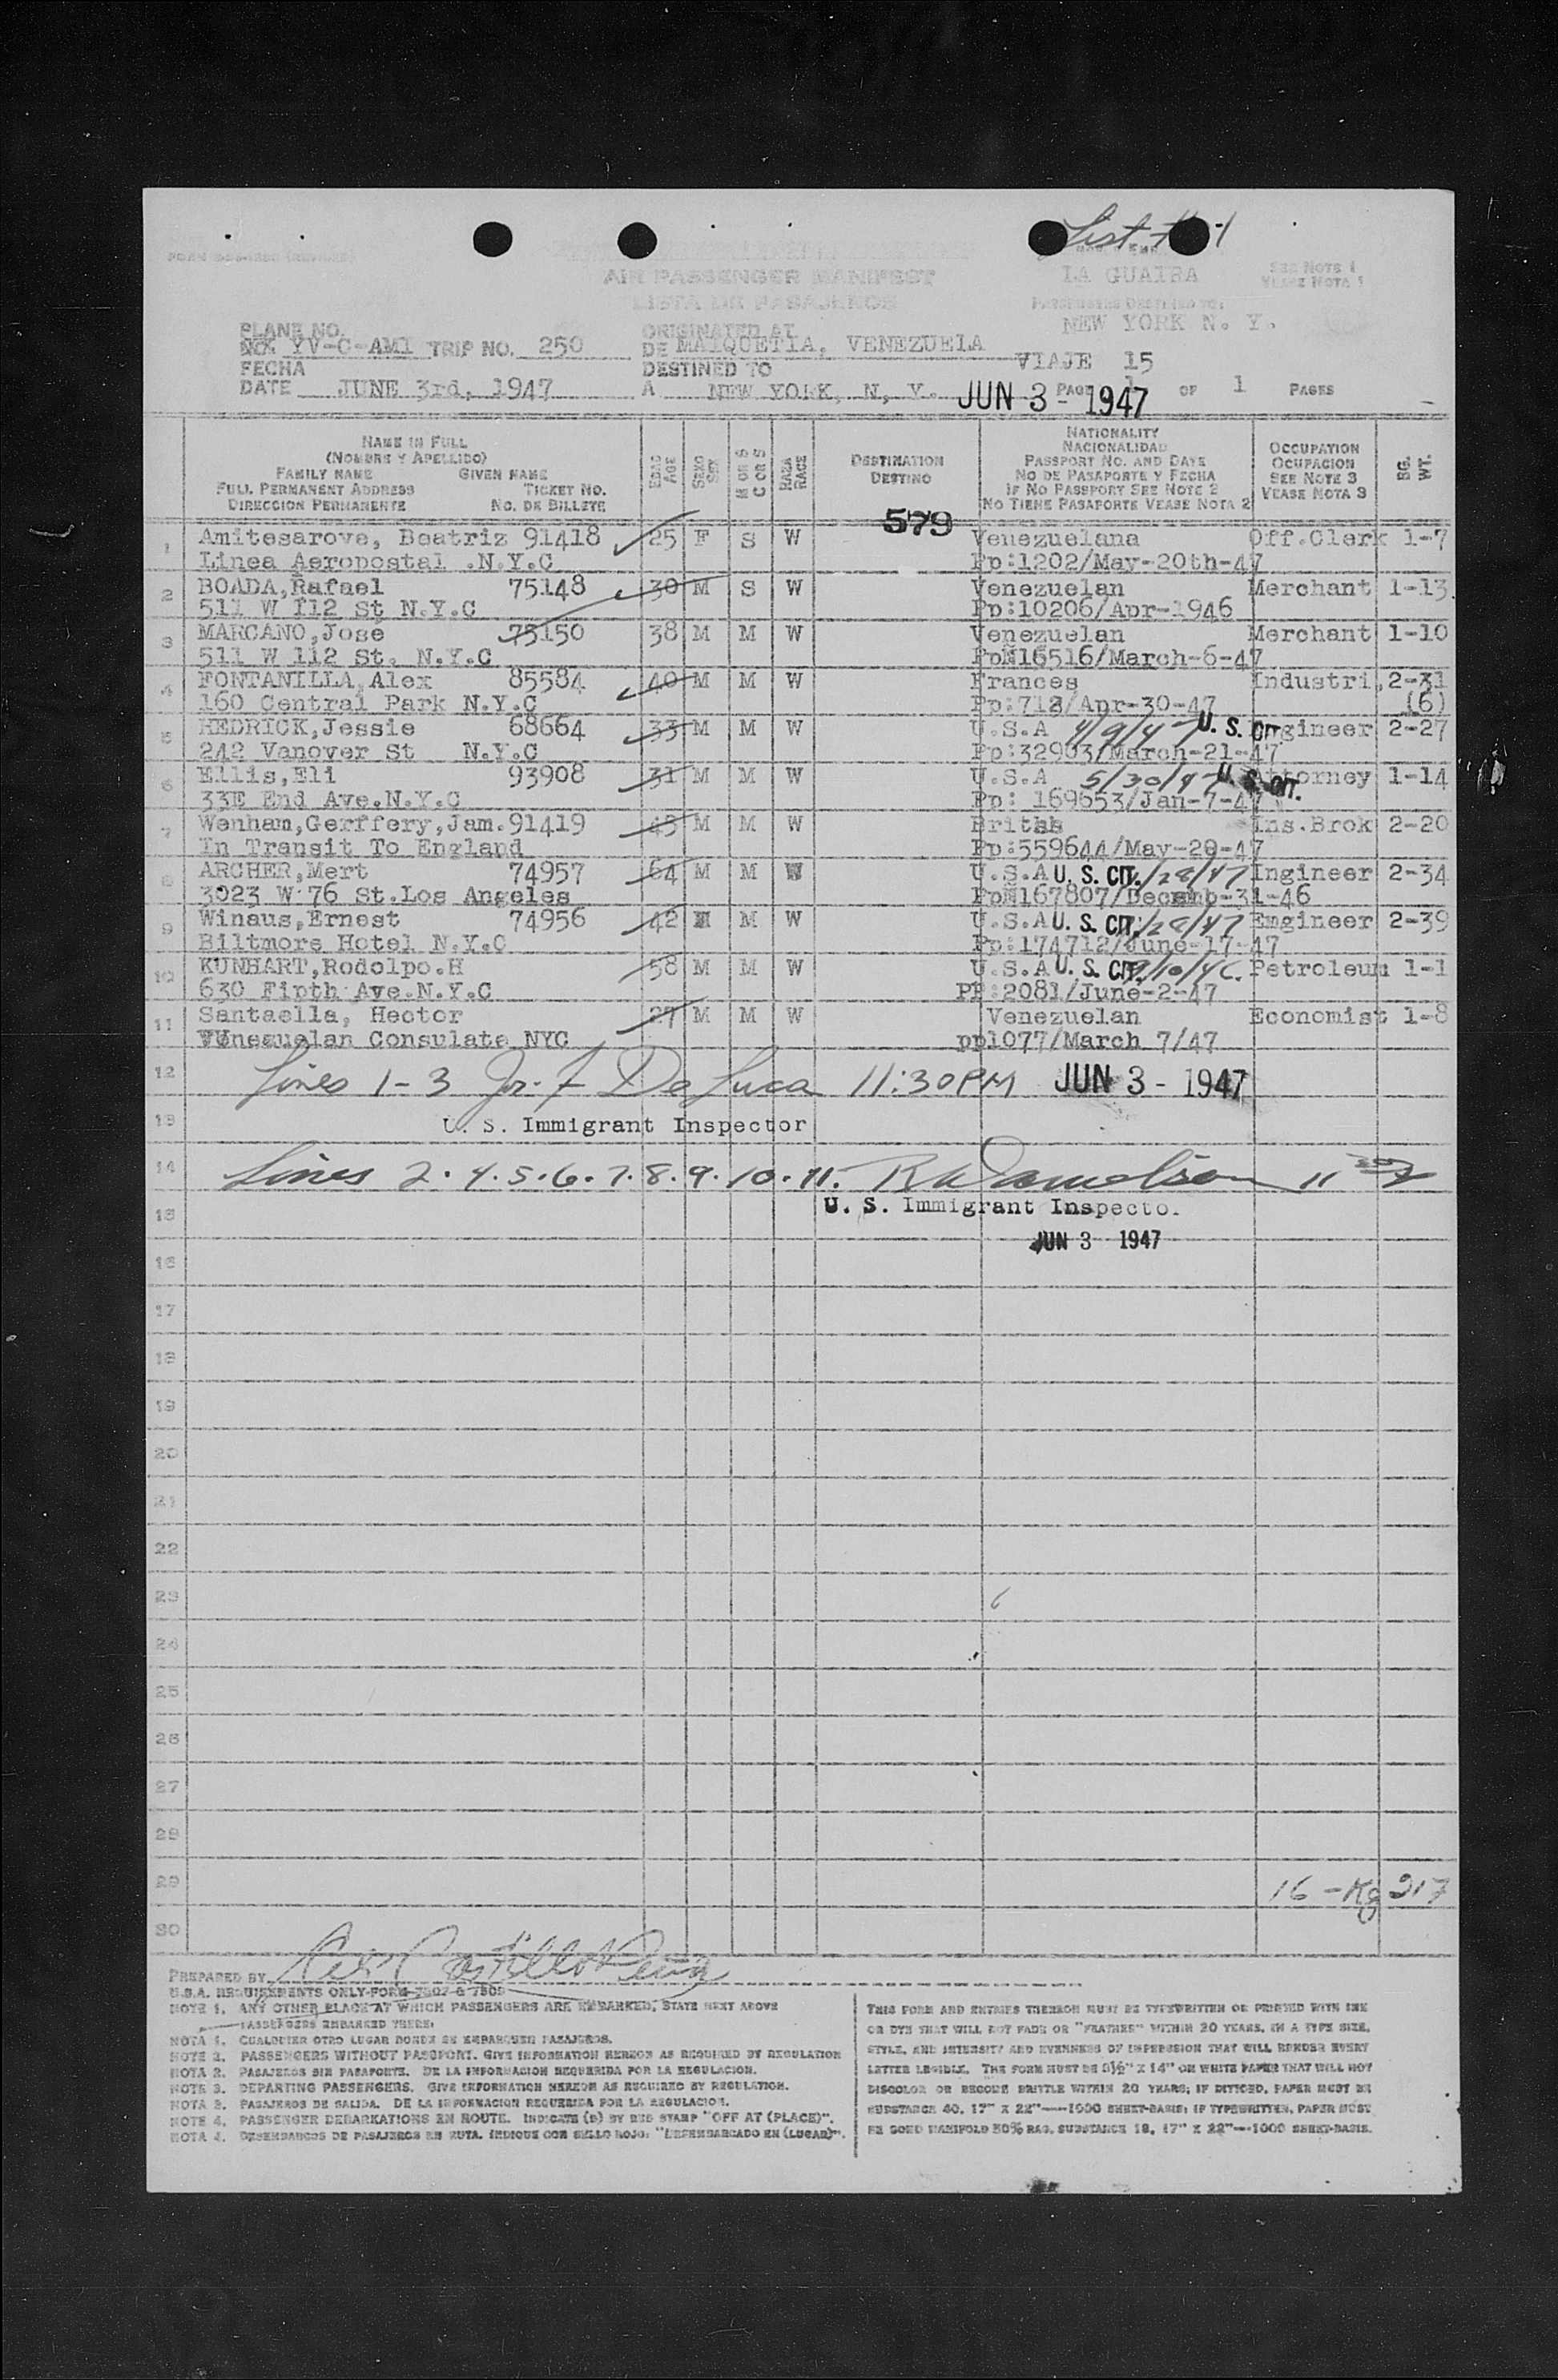 List # 1
AIR PASSENGER MANIFEST
LISTA DE PASAJEROS
LA GUAIRA
SEE NOTE 1
VEASE NOTA 1
PASSENGERS DESTINED TO:
NEW YORK N. Y.
PLANE NO. YV-C-AM1 TRIP NO. 250
ORIGINATED AT
DE MAIQUETIA, VENEZUELA
VIAJE 15
FECHA
DATE JUNE 3rd, 1947
DESTINED TO
A NEW YORK, N, Y.
JUN 3 - 1947
PAGE 1 OF 1 PAGES
NAME IN FULL
(NOMBRE Y APELLIDO)
FAMILY NAME GIVEN NAME
FULL PERMANENT ADDRESS TICKET NO.
DIRECCION PERMANENTE NO. DE BILLETE
EDAD AGE
SEXO SEX
M OR S C OR S
RAZA RACE
DESTINATION
DESTINO
NATIONALITY
NACIONALIDAD
PASSPORT NO. AND DATE
NO DE PASAPORTE Y FECHA
IF NO PASSPORT SEE NOTE 2
NO TIENE PASAPORTE VEASE NOTA 2
OCCUPATION
OCUPACION
SEE NOTE 3
VEASE NOTA 3
BG. WT.
579
1 Amitesarove, Beatriz 91418 25 F S W Venezuelana Off.Clerk 1-7
Linea Aeropostal .N.Y.C Pp:1202/May-20th-47
2 BOADA,Rafael 75148 30 M S W Venezuelan Merchant 1-13
511 W 112 St N.Y.C Pp:10206/Apr-1946
3 MARCANO,Jose 75150 38 M M W Venezuelan Merchant 1-10
511 W 112 St. N.Y.C PpN16516/March-6-47
4 FONTANILLA,Alex 85584 40 M M W Frances Industri, 2-31
160 Central Park N.Y.C Pp:718/Apr-30-47 (6)
5 HEDRICK,Jessie 68664 33 M M W U.S.A 4/9/47 U. S. CIT. Engineer 2-27
242 Vanover St N.Y.C Pp:32903/March-21-47
6 Ellis,Eli 93908 31 M M W U.S.A 5/30/47 U. S. CIT. Attorney 1-14
33E End Ave.N.Y.C Pp: 169653/Jan-7-47
7 Wenham,Gerffery,Jam. 91419 45 M M W Britsh Ins.Brok 2-20
In Transit To England Pp:559644/May-20-47
8 ARCHER,Mert 74957 64 M M W U.S.A U. S. CIT. /28/47 Ingineer 2-34
3023 W 76 St.Los Angeles PpN167807/Decemb-31-46
9 Winaus,Ernest 74956 42 M M W U.S.A U. S. CIT. /28/47 Engineer 2-39
Biltmore Hotel N.Y.C Pp:174712/June-17-47
10 KUNHART,Rodolpo.H 58 M M W U.S.A U. S. CIT. 9/10/46. Petroleum 1-1
630 Fipth Ave.N.Y.C PP:2081/June-2-47
11 Santaella, Hector 27 M M W Venezuelan Economist 1-8
Venesuelan Consulate NYC pp1077/March 7/47
12 Lines 1-3 Jr. F De Luca 11:30PM JUN 3 - 1947
13 U. S. Immigrant Inspector
14 Lines 2.4.5.6.7.8.9.10.11.
15 U. S. Immigrant Inspector
JUN 3 1947
16
17
18
19
20
21
22
23
24
25
26
27
28
29 16 - Kg 217
30
PREPARED BY
U.S.A. REQUIREMENTS ONLY-FORM 7507 & 7509
NOTE 1. ANY OTHER PLACE AT WHICH PASSENGERS ARE EMBARKED, STATE NEXT ABOVE
PASSENGERS EMBARKED THERE:
NOTA 1. CUALQUIER OTRO LUGAR DONDE SE EMBARQUEN PASAJEROS.
NOTE 2. PASSENGERS WITHOUT PASSPORT. GIVE INFORMATION HEREON AS REQUIRED BY REGULATION
NOTA 2. PASAJEROS SIN PASAPORTE. DE LA INFORMACION REQUERIDA POR LA REGULACION.
NOTE 3. DEPARTING PASSENGERS. GIVE INFORMATION HEREON AS REQUIRED BY REGULATION.
NOTA 3. PASAJEROS DE SALIDA. DE LA INFORMACION REQUERIDA POR LA REGULACION.
NOTE 4. PASSENGER DEBARKATIONS EN ROUTE. INDICATE (D) BY RED STAMP "OFF AT (PLACE)".
NOTA 4. DESEMBARCOS DE PASAJEROS EN RUTA. INDIQUE CON SELLO ROJO: "DESEMBARCADO EN (LUGAR)".
THIS FORM AND ENTRIES THEREON MUST BE TYPEWRITTEN OR PRINTED WITH INK
OR DYE THAT WILL NOT FADE OR "FEATHER" WITHIN 20 YEARS, IN A TYPE SIZE,
STYLE, AND INTENSITY AND EVENNESS OF IMPRESSION THAT WILL RENDER EVERY
LETTER LEGIBLE. THE FORM MUST BE 8½" X 14" ON WHITE PAPER THAT WILL NOT
DISCOLOR OR BECOME BRITTLE WITHIN 20 YEARS; IF DITTOED, PAPER MUST BE
SUBSTANCE 40, 17" X 22"---1000 SHEET-BASIS; IF TYPEWRITTEN, PAPER MUST
BE BOND MANIFOLD 50% RAG, SUBSTANCE 18, 17" X 22"---1000 SHEET-BASIS.